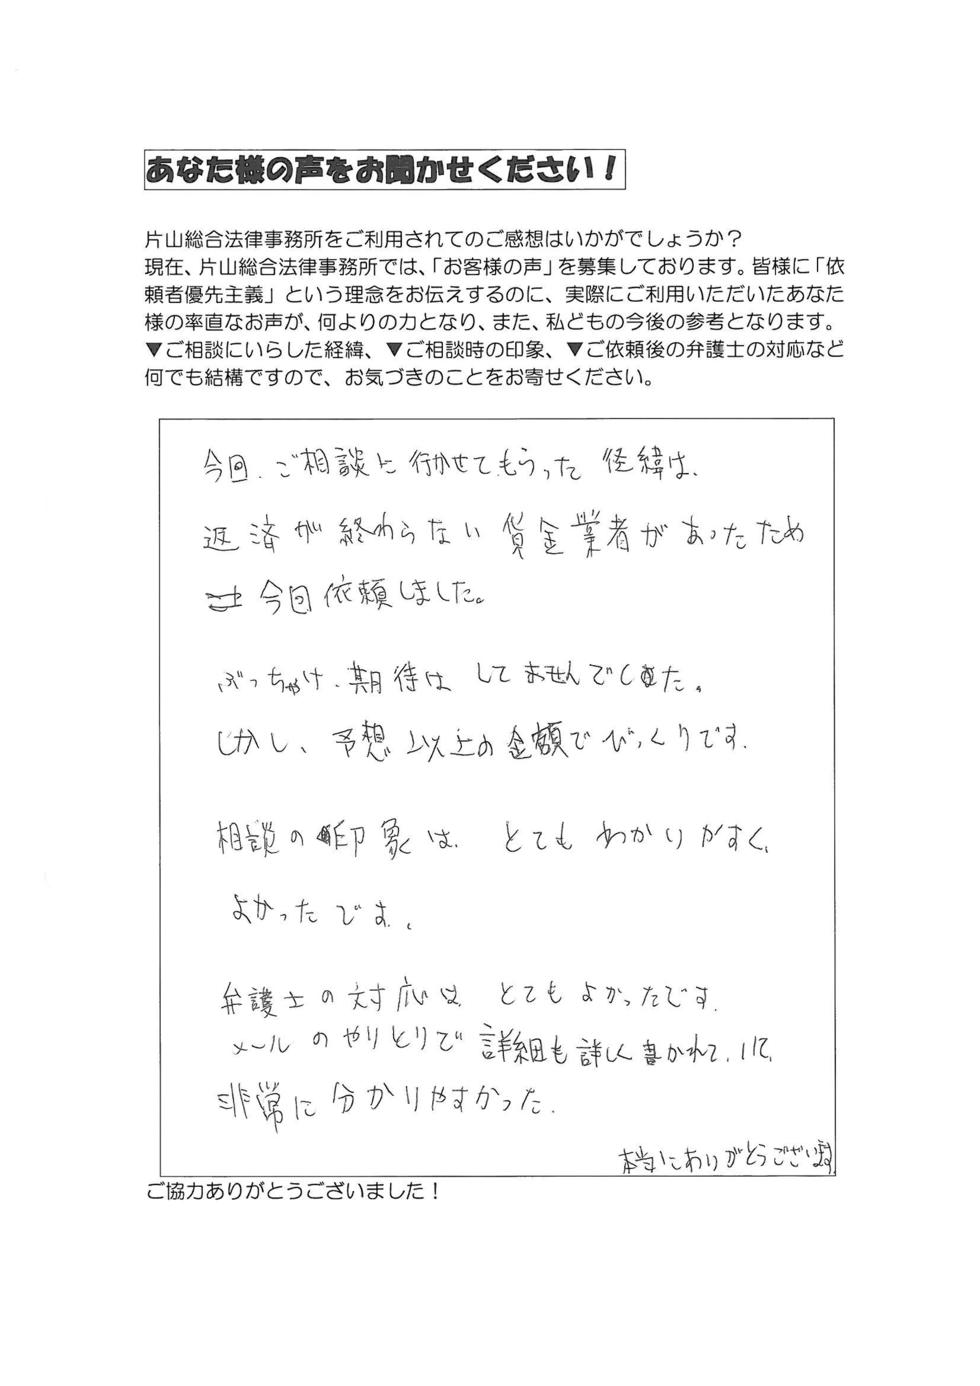 あなた様の声をお聞かせください！
片山総合法律事務所をご利用されてのご感想はいかがでしょうか？
現在、片山総合法律事務所では、「お客様の声」を募集しております。皆様に「依
頼者優先主義」という理念をお伝えするのに、実際にご利用いただいたあなた
様の率直なお声が、何よりの力となり、また、私どもの今後の参考となります。
▼ご相談にいらした経緯、▼ご相談時の印象、▼ご依頼後の弁護士の対応など
何でも結構ですので、お気づきのことをお寄せください。
今回、ご相談に行かせてもらった 径緯は、
返済が終わらない貸金業者があったため
今回依頼しました。
ぶっちゃけ、期待は してませんでした。
しかし、予想以上の金額でびっくりです。
相談の印象は、とても わかりかすく、
よかったです。
弁護士の対応は とてもよかったです。
メールのやりとりで詳細も詳しく書かれていて、
非常に分かりやすかった。
本当にありがとうございます。
ご協力ありがとうございました！